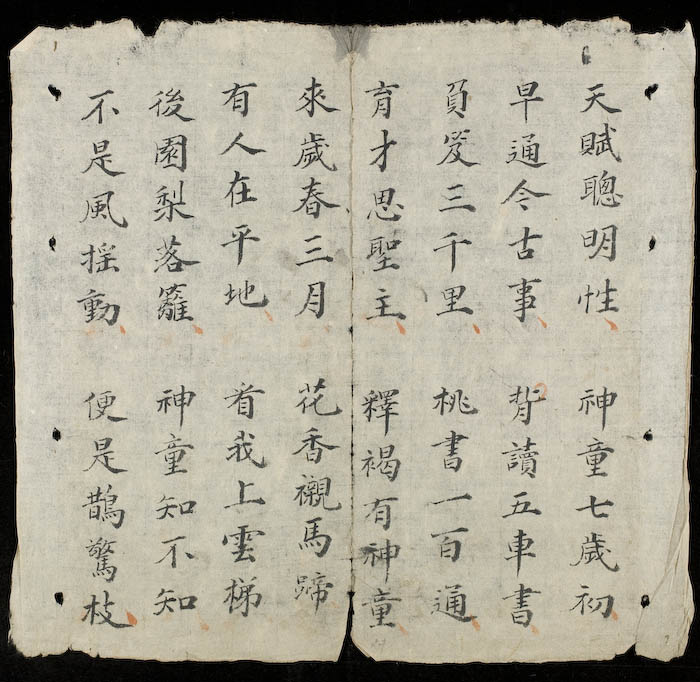 天賦聰明性 神童七歲初
早通今古事 背讀五車書
負笈三千里 桃書一百通
育才思聖主 釋褐有神童
來歲春三月 花香襯馬蹄
有人在平地 看我上雲梯
後園梨落籬 神童知不知
不是風摇動 便是鵲驚枝